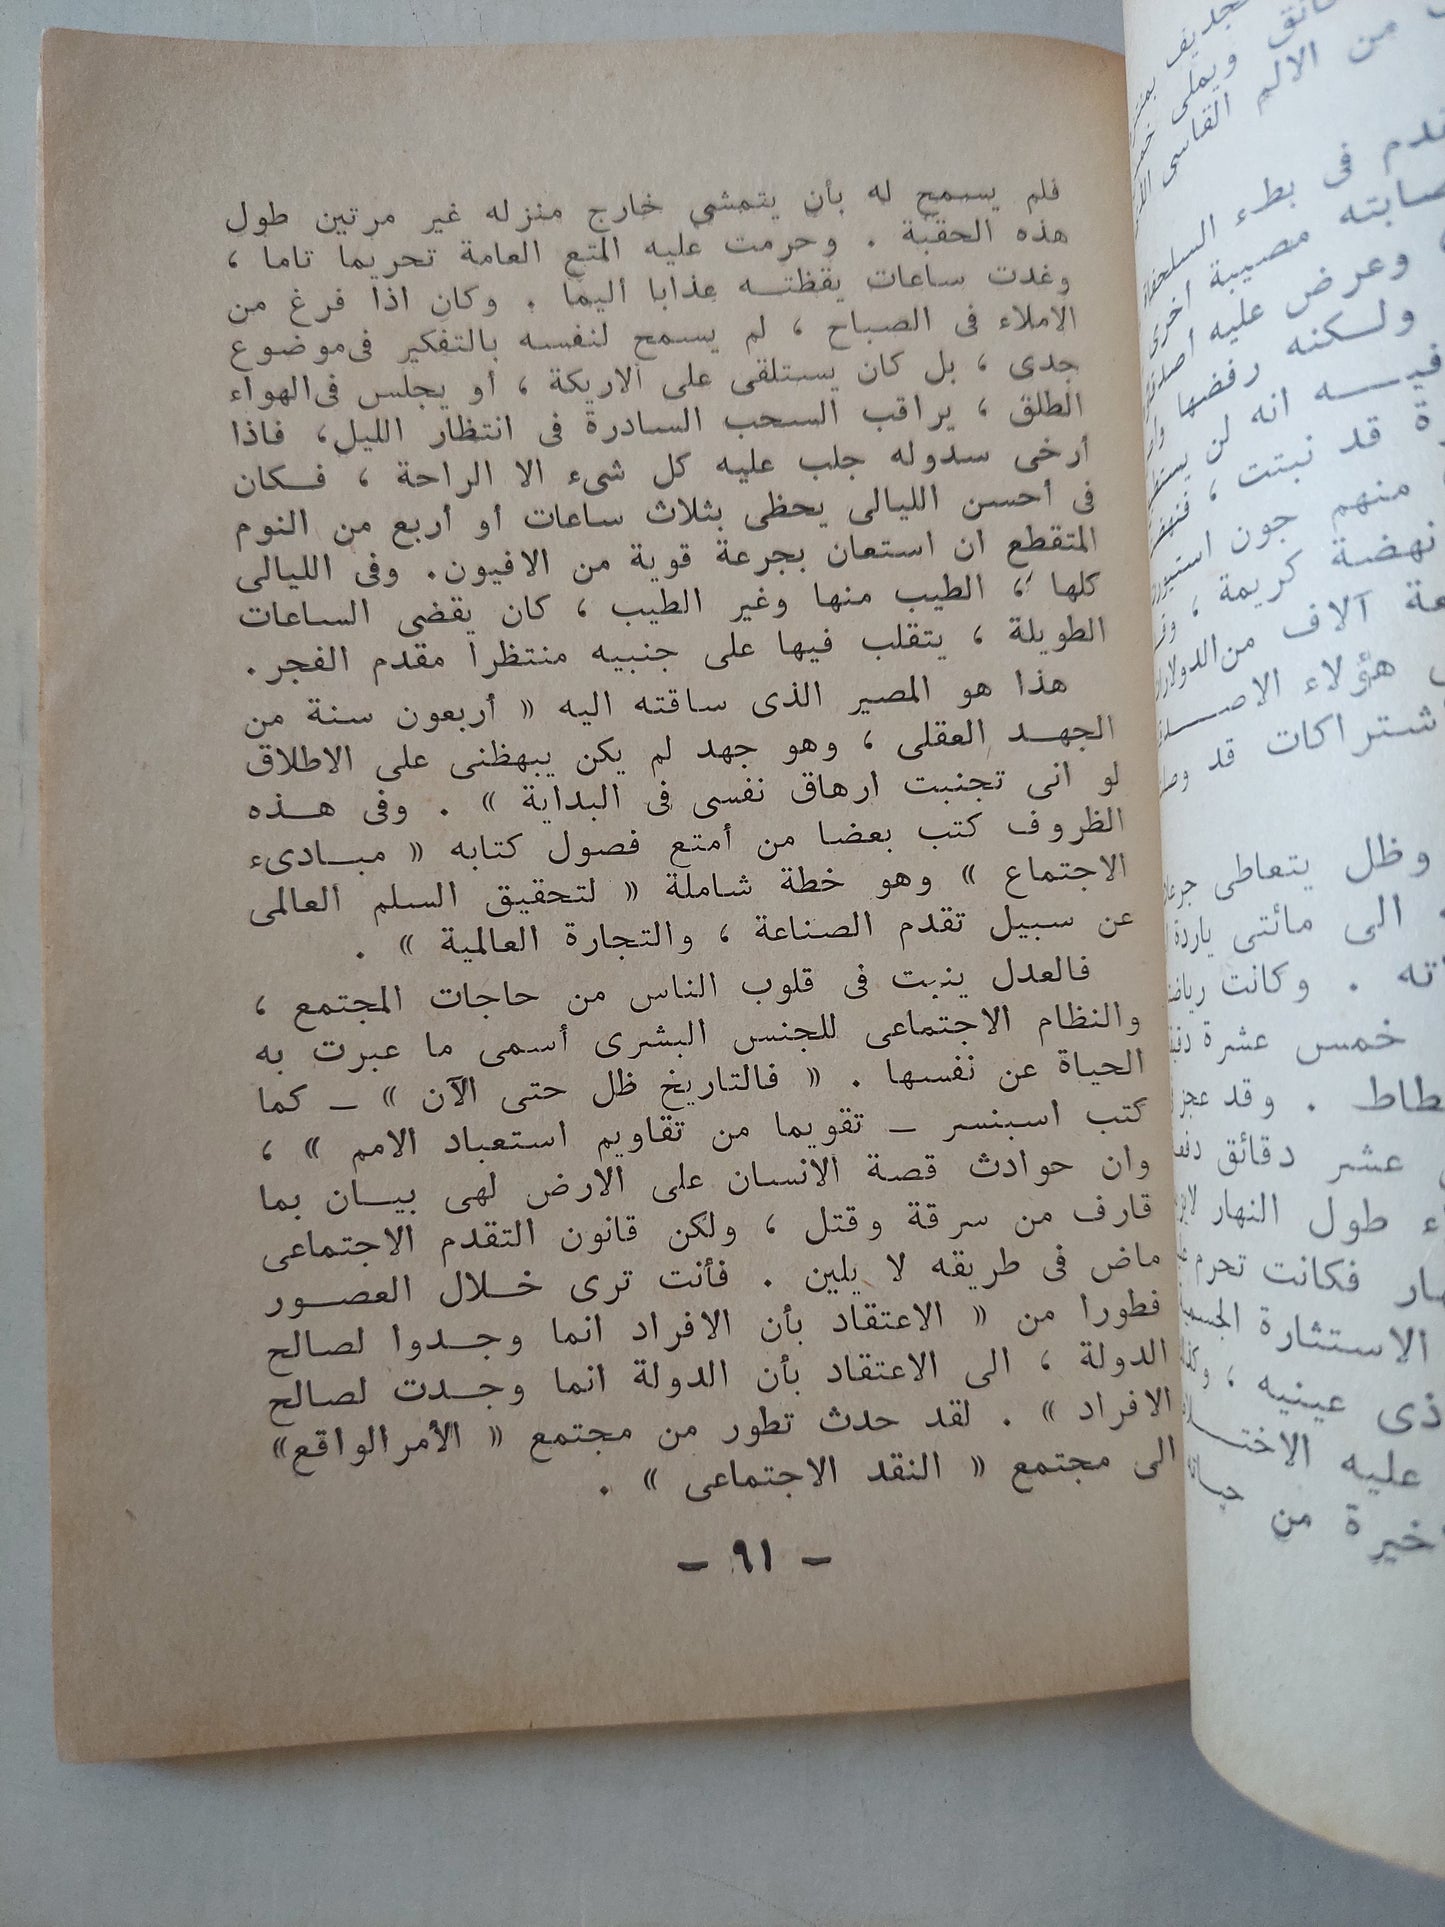 فلم يسمح له بأن يتمشى خارج منزله غير مرتين طول
هذه الحقبة . وحرمت عليه المتع العامة تحريما تاما ،
وغدت ساعات يقظتــه عذابا أليما . وكان اذا فرغ من
الاملاء فى الصباح ، لم يسمح لنفسه بالتفكير فى موضوع
جدى ، بل كان يستلقى على الاريكة ، أو يجلس فى الهواء
الطلق ، يراقب السحب السادرة فى انتظار الليل، فاذا
أرخى سدوله جلب عليه كل شىء الا الراحة ، فــكان
فى أحسن الليالى يحظى بثلاث ساعات أو أربع من النوم
المتقطع ان استعان بجرعة قوية من الافيون. وفى الليالى
كلها ، الطيب منها وغير الطيب ، كان يقضى الساعات
الطويلة ، يتقلب فيها على جنبيه منتظرا مقدم الفجر.
هذا هو المصير الذى ساقته اليه « أربعون سنة من
الجهــد العقلى ، وهو جهد لم يكن يبهظنى على الاطلاق
لو انى تجنبت ارهاق نفسى فى البداية » . وفى هــذه
الظروف كتب بعضا من أمتع فصول كتابه « مبــادىء
الاجتماع » وهو خطة شاملة « لتحقيق السلم العالمى
عن سبيل تقدم الصناعة ، والتجارة العالمية » .
فالعدل ينبت فى قلوب الناس من حاجات المجتمع ،
والنظام الاجتماعى للجنس البشرى أسمى ما عبرت به
الحياة عن نفسها . « فالتاريخ ظل حتى الآن » ـ كما
كتب اسبنسر ـ تقويما من تقاويم استعباد الامم » ،
وان حوادث قصة الانسان على الارض لهى بيــان بما
قارف من سرقة وقتل ، ولكن قانون التقدم الاجتماعى
ماض فى طريقه لا يلين . فأنت ترى خــلال العصــور
فطورا من « الاعتقاد بأن الافراد انما وجــدوا لصالح
الدولة ، الى الاعتقاد بأن الدولة انما وجــدت لصالح
الافراد » . لقد حدث تطور من مجتمع « الأمر الواقع»
الى مجتمع « النقد الاجتماعى » .
ـ ٩١ ـ
من الالم القاسى
فى بطء السلحفاة
مصيبة أخرى
وعرض عليه
ولــكنه رفضها
انه لن
قد نبتت ،
منهم جون
نهضة كريمة ،
آلاف من الدولارات
هؤلاء
قد
وظل يتعاطى
الى مائتى ياردة
. وكانت
خمس عشرة
. وقد
عشر دقائق
طول النهار
فكانت تحرم
الاستثارة
عينيه ،
عليه
من